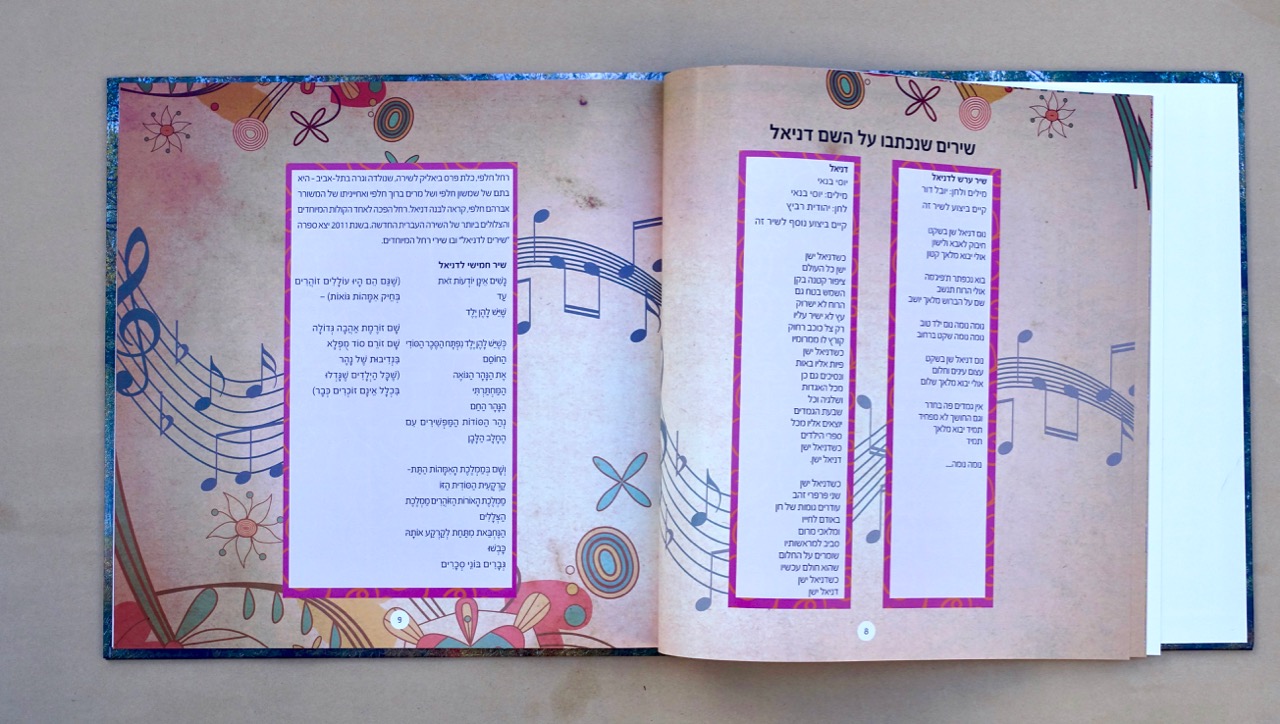 שירים שנכתבו על השם דניאל
שיר ערש לדניאל
מילים ולחן: יובל דור
קיים ביצוע לשיר זה
נום דניאל שן בשקט
חיבוק לאבא ולישון
אולי יבוא מלאך קטון
בוא נכפתר ת'פיג'מה
אולי הרוח תנשב
שם על הברוש מלאך יושב
נומה נומה נום ילד טוב
נומה נומה שקט ברחוב
נום דניאל שן בשקט
עצום עינים וחלום
אולי יבוא מלאך שלום
אין גמדים פה בחדר
וגם החושך לא מפחיד
תמיד יבוא מלאך
תמיד
נומה נומה....
דניאל
יוסי בנאי
מילים: יוסי בנאי
לחן: יהודית רביץ
קיים ביצוע נוסף לשיר זה
כשדניאל ישן
ישן כל העולם
ציפור קטנה בקן
השמש בנוח גם
הרוח לא ישרוק
עץ לא ישיר עליו
רק צל כוכב רחוק
קורץ לו ממרומיו
כשדניאל ישן
פיות אליו באות
ונסיכים גם כן
מכל האגדות
ושלגיה וכל
שבעת הגמדים
יוצאים אליו מכל
ספרי הילדים
כשדניאל ישן
דניאל ישן.
כשדניאל ישן
שני פרפרי זהב
עודרים גומות של חן
באודם לחייו
ומלאכי מרום
סביב למראשותיו
שומרים על החלום
שהוא חולם עכשיו
כשדניאל ישן
דניאל ישן
8
רחל חלפי, כלת פרס ביאליק לשירה, שנולדה וגרה בתל-אביב - היא
בתם של שמשון חלפי ושל מרים ברוך חלפי ואחייניתו של המשורר
אברהם חלפי, קראה לבנה דניאל. רחל הפכה לאחד הקולות המיוחדים
והצלולים ביותר של השירה העברית החדשה. בשנת 2011 יצא ספרה
"שירים לדניאל" ובו שירי רחל המיוחדים.
שיר חמישי לדניאל
נָשִׁים אֵינָן יוֹדְעוֹת זֹאת
עַד
שֶׁיֵּשׁ לָהֶן יֶלֶד
כְּשֶׁיֵּשׁ לָהֶן יֶלֶד נִפְתָּח הַסֶּכֶר הַסּוֹדִי
הַחוֹסֵם
אֶת הַנָּהָר הַגּוֹאֶה
הַמַּחְתַּרְתִּי
הַנָּהָר הַחַם
נְהַר הַסּוֹדוֹת הַמַּפְשִׁירִים עִם
הֶחָלָב הַלָּבָן
וְשָׁם בְּמַמְלֶכֶת הָאִמָּהוֹת הַתַּת-
קַרְקָעִית הַסּוֹדִית הַזּוֹ
מַמְלֶכֶת הָאוֹרוֹת הַזּוֹהֲרִים מַמְלֶכֶת
הַצְּלָלִים
הַנֶּחְבֵּאת מִתַּחַת לַקַּרְקַע אוֹתָהּ
כָּבְשׁוּ
גְּבָרִים בּוֹנֵי סְכָרִים
(שֶׁגַּם הֵם הָיוּ עוֹלָלִים זוֹהֲרִים
בְּחֵיק אִמָּהוֹת גּוֹאוֹת) –
שָׁם זוֹרֶמֶת אַהֲבָה גְּדוֹלָה
שָׁם זוֹרֵם סוֹד מֻפְלָא
בִּנְדִיבוּת שֶׁל נָהָר
(שֶׁכָּל הַיְלָדִים שֶׁגָּדְלוּ
בִּכְלָל אֵינָם זוֹכְרִים כְּבָר)
9